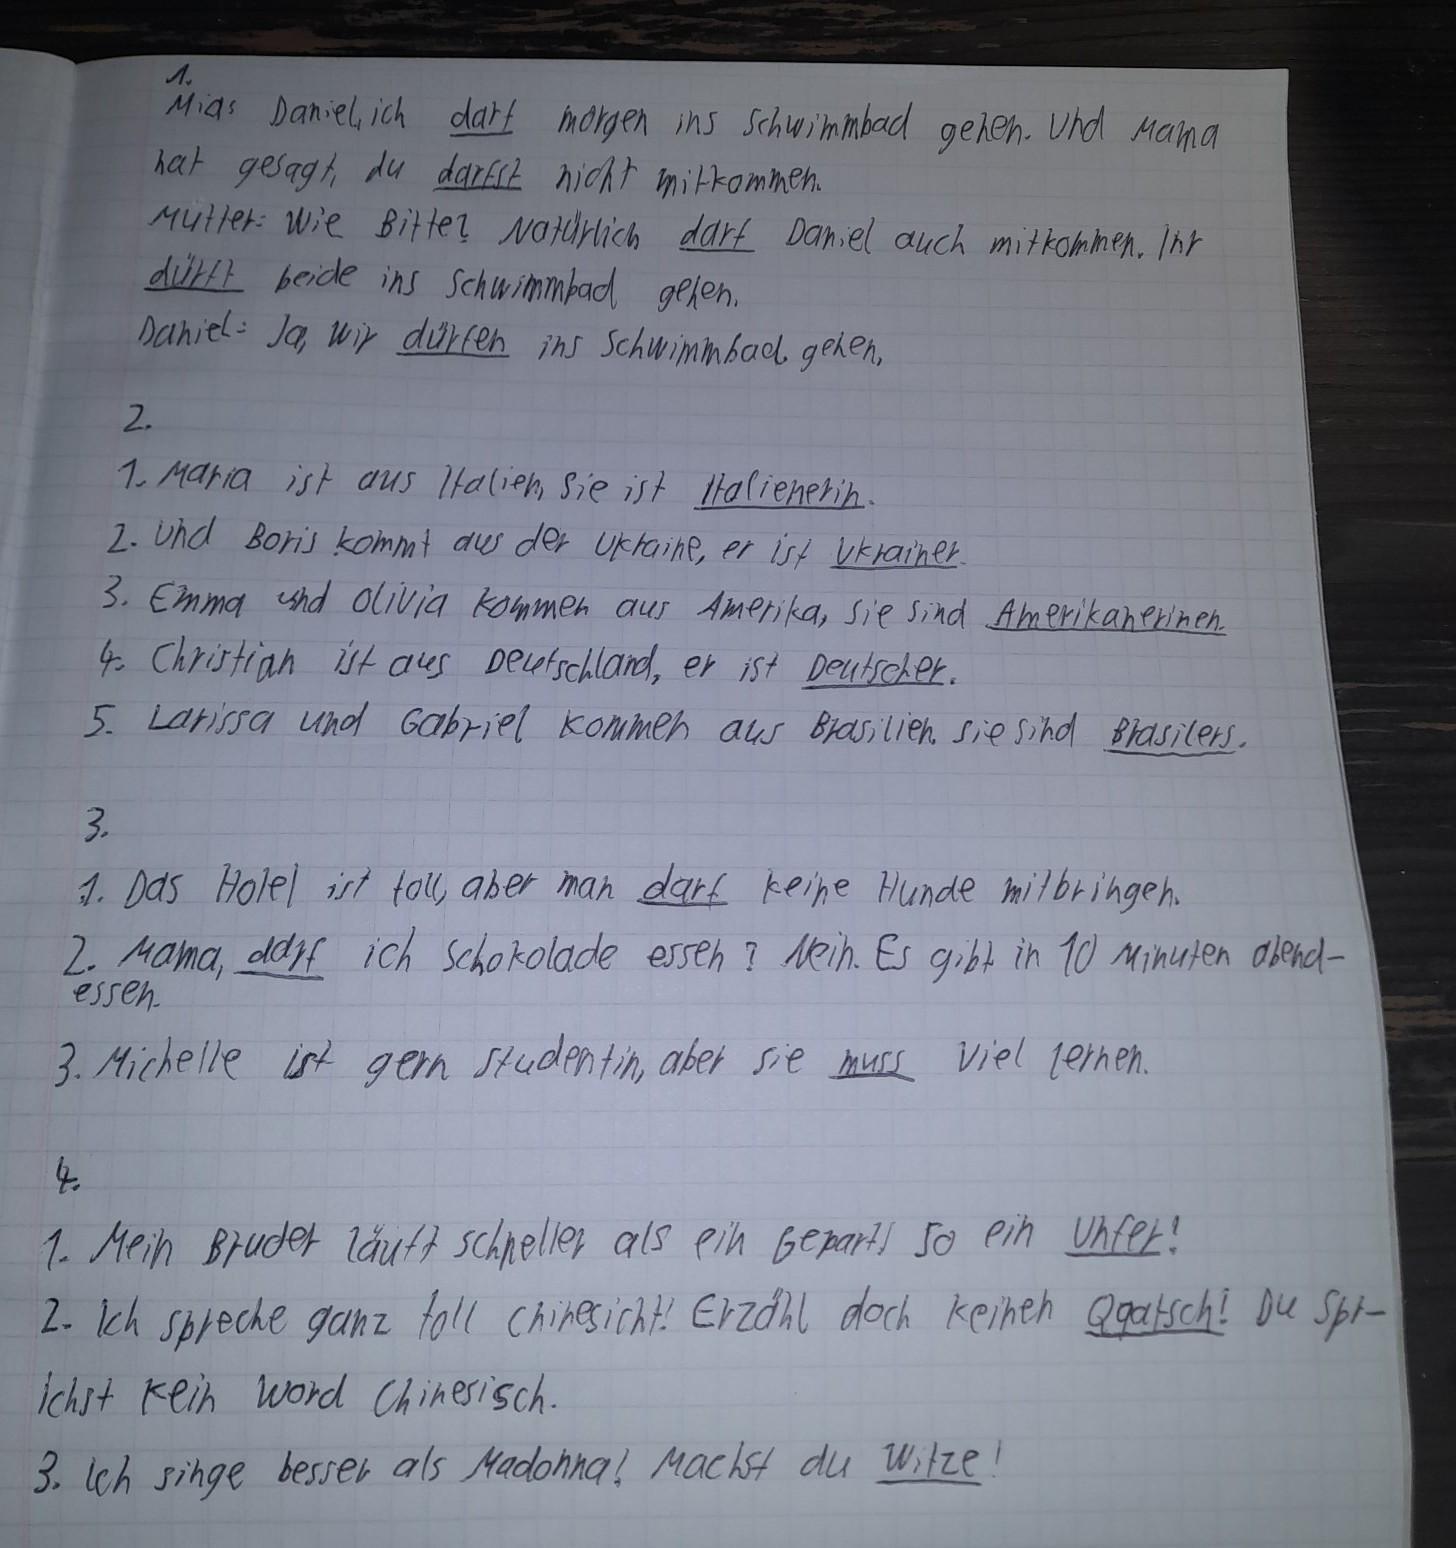 1.
Mia: Daniel, ich darf morgen ins Schwimmbad gehen. Und Mama
hat gesagt, du darfst nicht mitkommen.
Mutter: Wie Bitte? Natürlich darf Daniel auch mitkommen. Ihr
dürft beide ins Schwimmbad gehen.
Daniel: Ja, wir dürfen ins Schwimmbad gehen.
2.
1. Maria ist aus Italien, sie ist Italienerin.
2. Und Boris kommt aus der Ukraine, er ist Ukrainer.
3. Emma und Olivia kommen aus Amerika, sie sind Amerikanerinen.
4. Christian ist aus Deutschland, er ist Deutscher.
5. Larissa und Gabriel kommen aus Brasilien. sie sind Brasilers.
3.
1. Das Hotel ist toll, aber man darf keine Hunde mitbringen.
2. Mama, darf ich Schokolade essen? Nein. Es gibt in 10 Minuten abend-
essen.
3. Michelle ist gern Studentin, aber sie muss viel lernen.
4.
1. Mein Bruder läuft schneller als ein Gepart! So ein Unfer!
2. Ich spreche ganz toll chinesicht! Erzähl doch keinen Qqatsch! Du spr-
ichst kein Word Chinesisch.
3. Ich singe besser als Madonna! Machst du Witze!